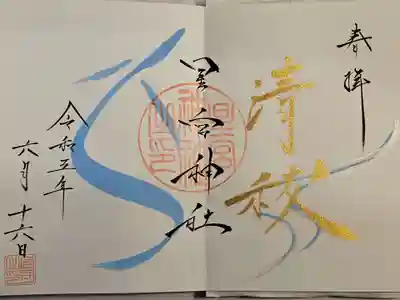 奉拝
清祓
星宮神社
令和五年
六月十六日